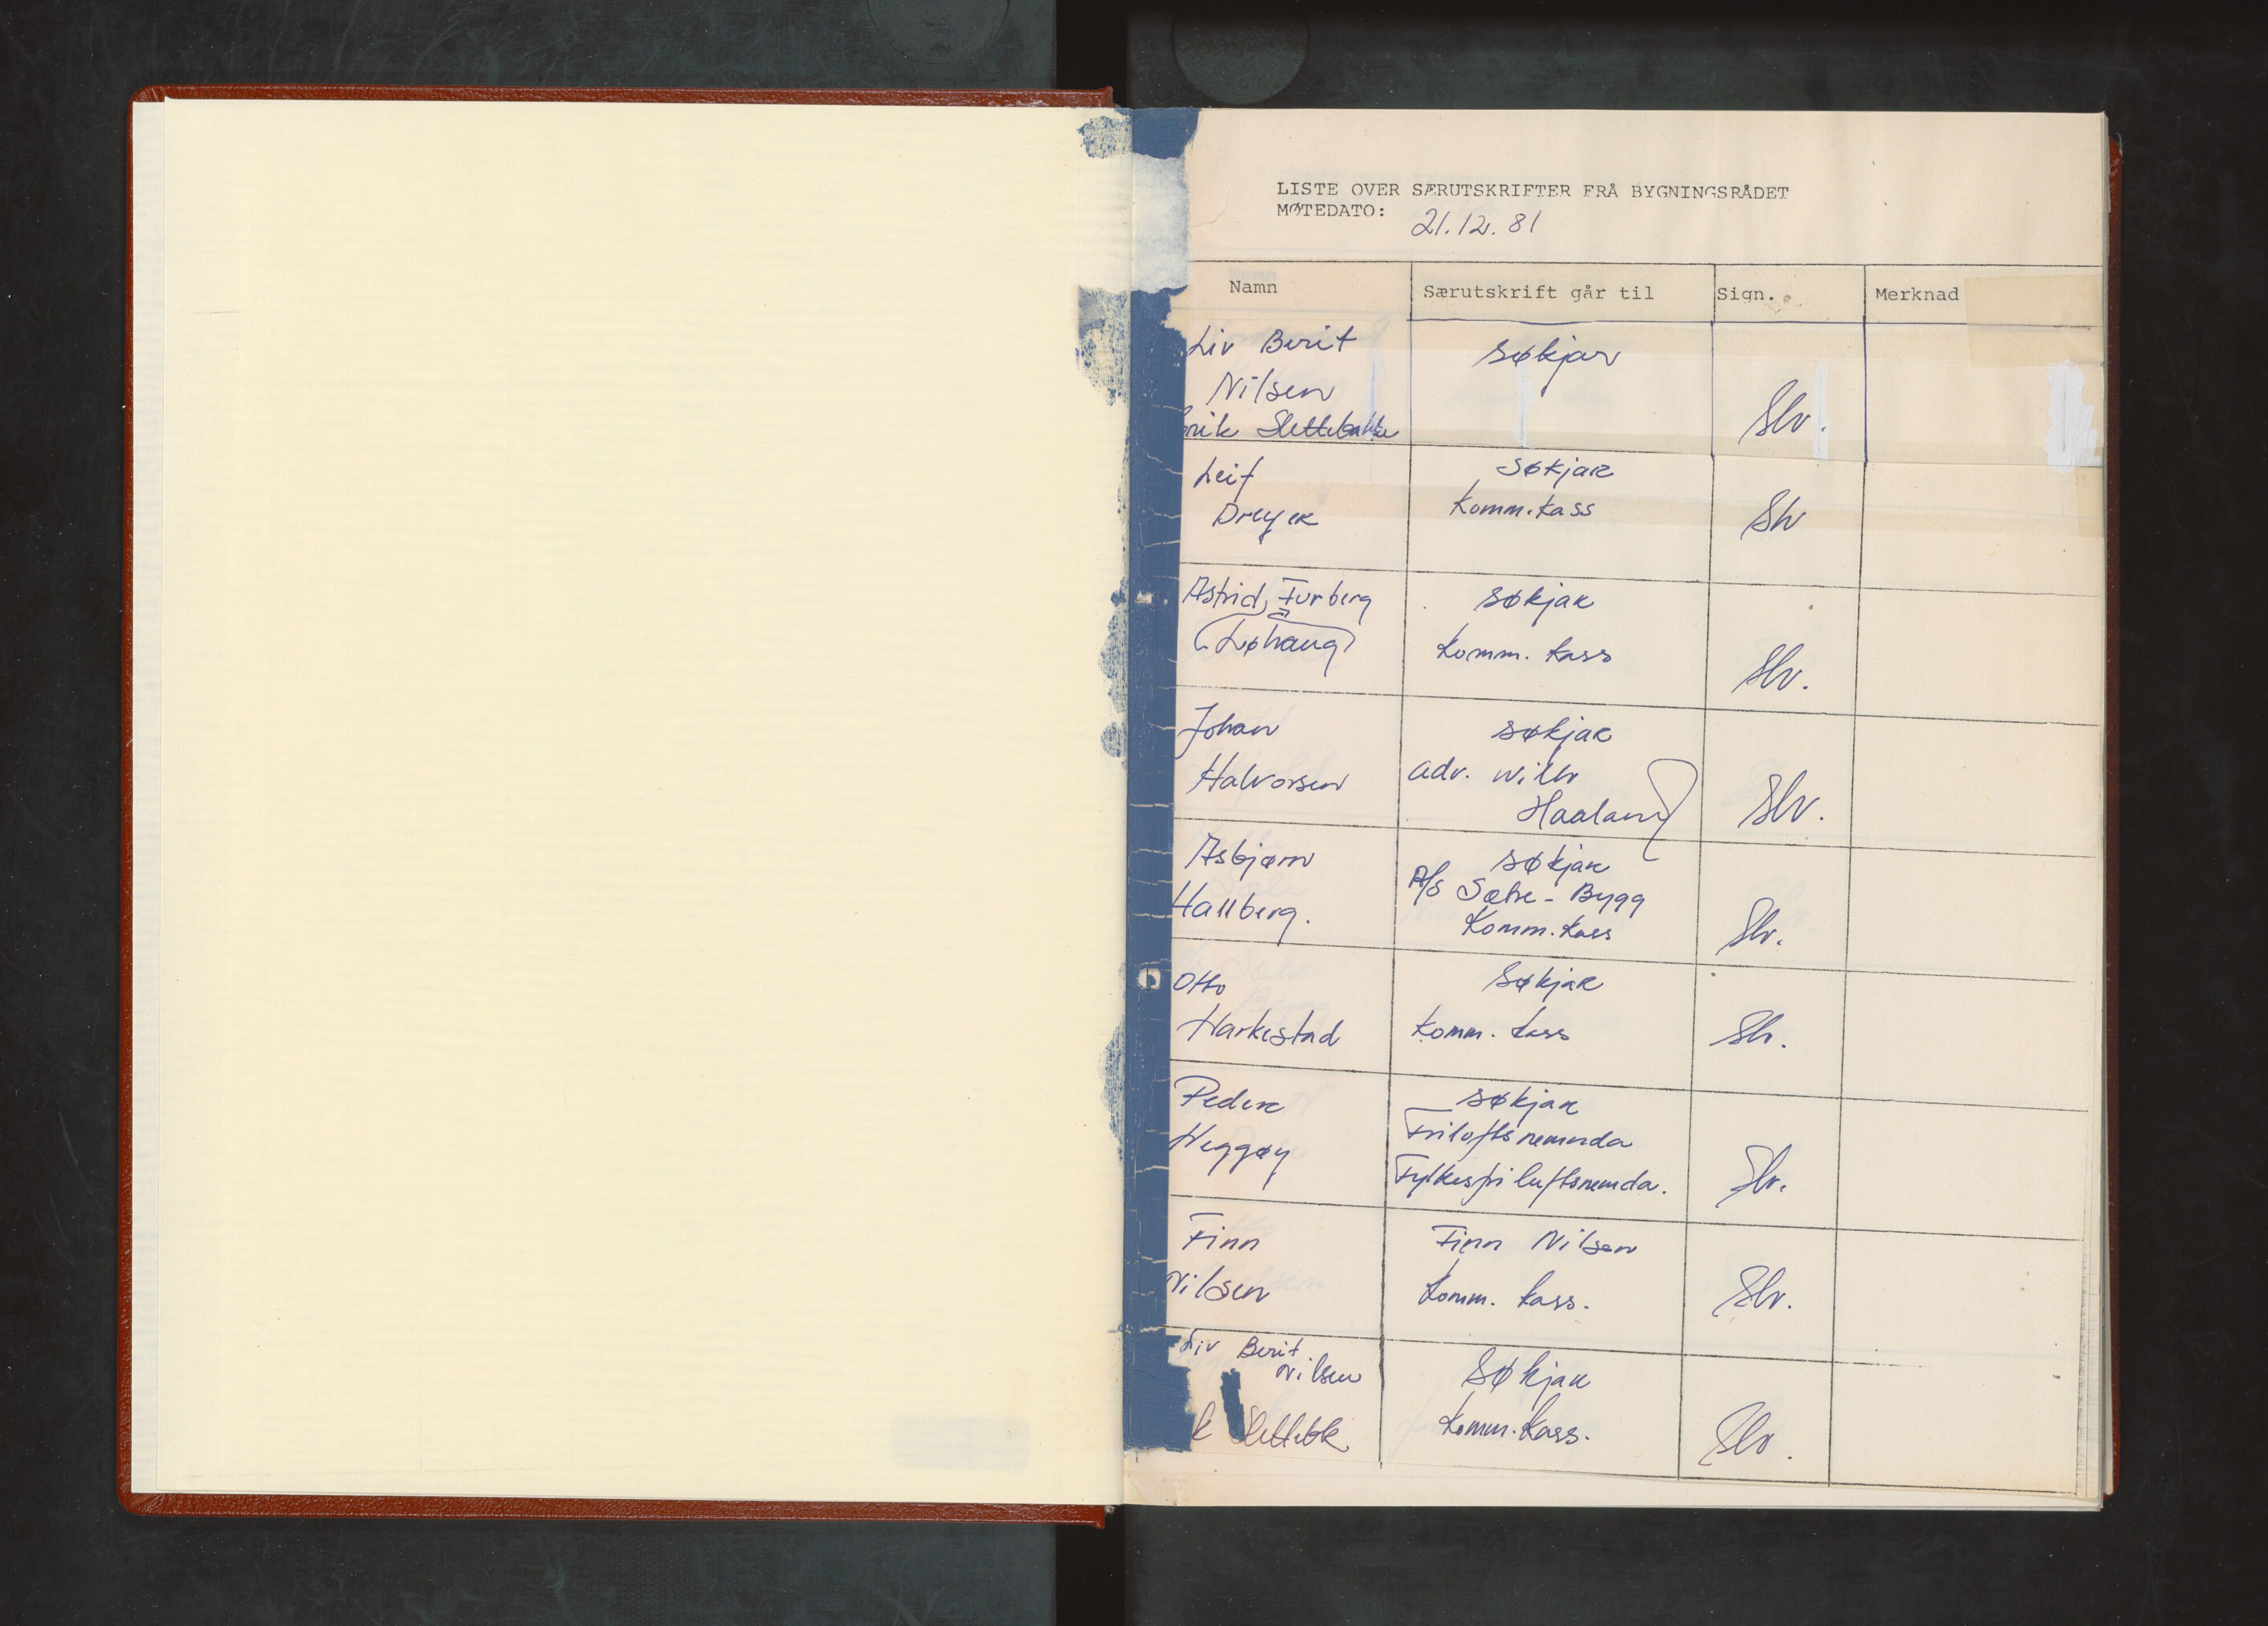 LISTE OVER SÆRUTSKRIFTER FRÅ BYGNINGSRÅDET
MØTEDATO: 21.12.81
Namn Særutskrift går til Sign. Merknad
Liv Berit søkjar
Nilsen
Slettebakke Slv.
Leif søkjar
Dreyer Komm.kass Slv
Astrid Furberg søkjar
(Løhaug) Komm. kass Slv.
Johan søkjar
Halvorsen adv. Wilh
Haaland Slv.
Asbjørn søkjar
A/S Sæbre - Bygg
Hallberg. Komm.kass Slv.
Otto søkjar
Harkestad Komm. kass Slv.
Peder søkjar
Heggøy Friluftsnemnda
Fylkesfriluftsnemda. Slv.
Finn Finn Nilsen
Nilsen Komm. kass. Slv.
Liv Berit
Nilsen søkjar
Slettebk Komm.kass. Slv.